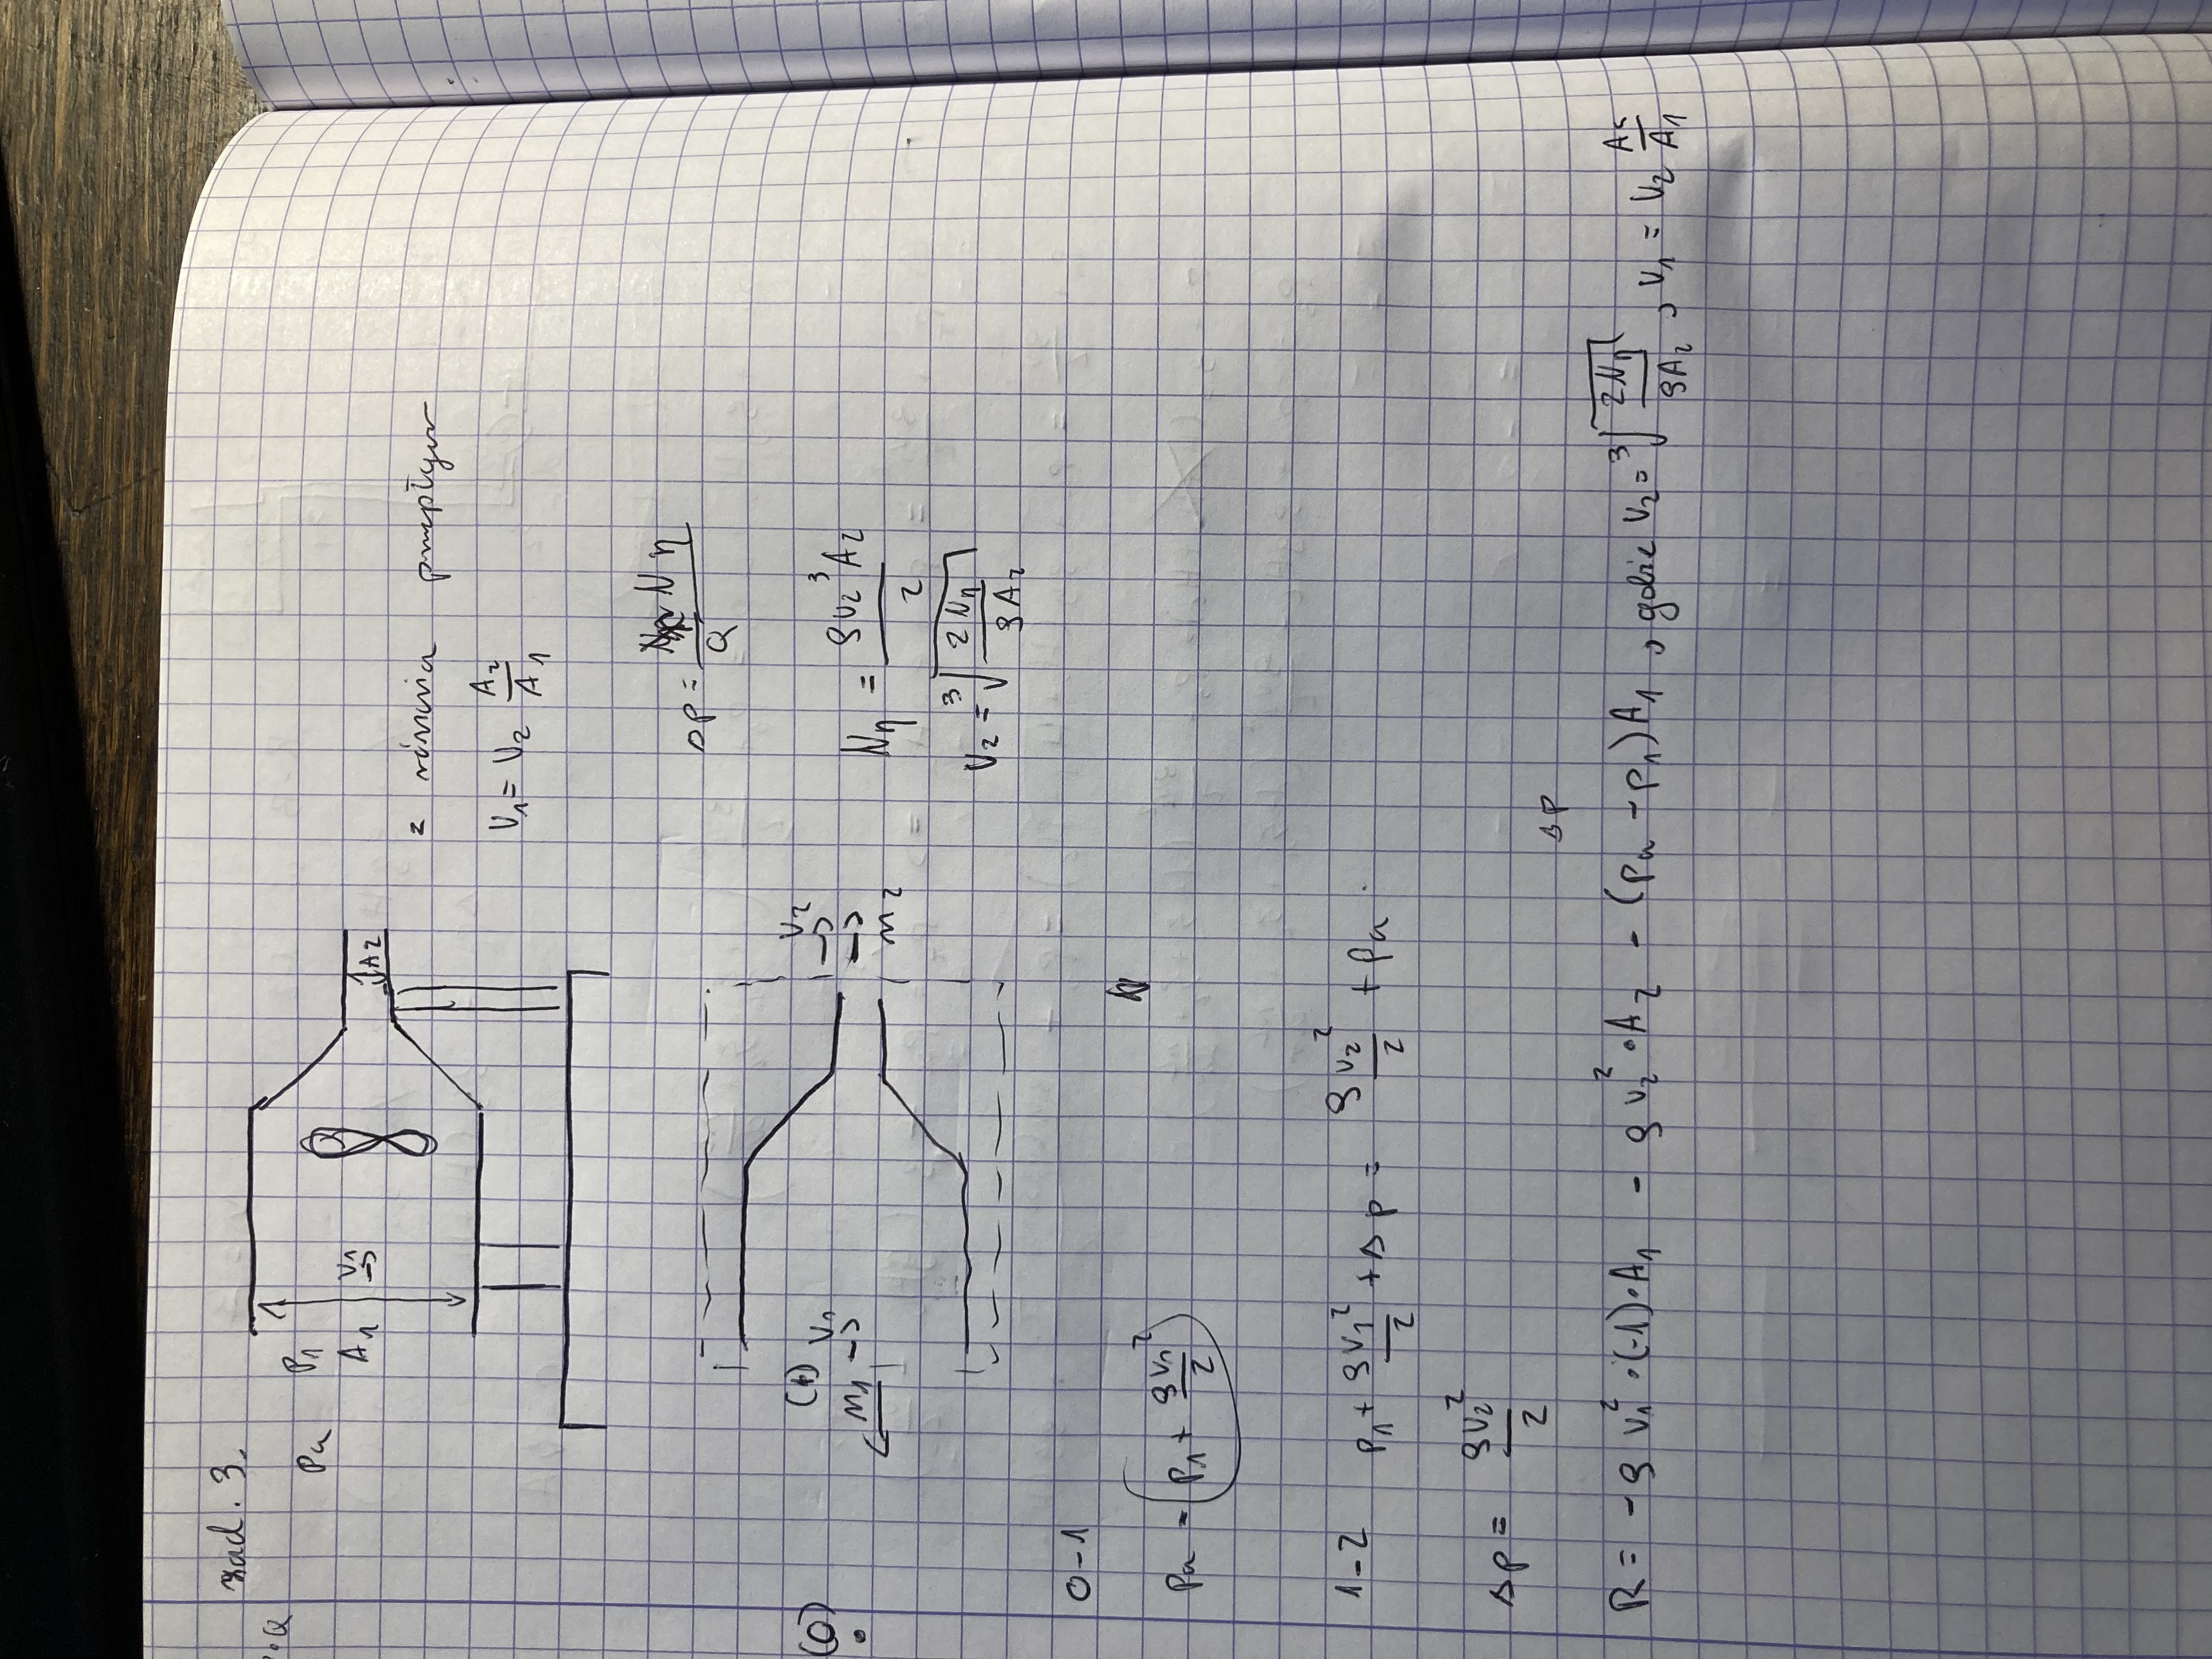 zad. 3.
·Q
Pa P1
A1 V1 →
A2
z równania przepływu
V1 = V2 A2/A1
Δp = N η / Q
(0)
(1) V1
n1 →
V2
→
n2
Nη = ρV2³A2 / 2
V2 = ³√(2Nη / ρA2)
0-1
Pa = (P1 + ρV1²/2)
1-2 P1 + ρV1²/2 + Δp = ρV2²/2 + Pa
Δp = ρV2²/2
Δp
R = -ρ V1²·(-1)·A1 - ρ V2²·A2 - (Pa - P1)A1, gdzie V2 = ³√(2Nη / ρA2), V1 = V2 A2/A1